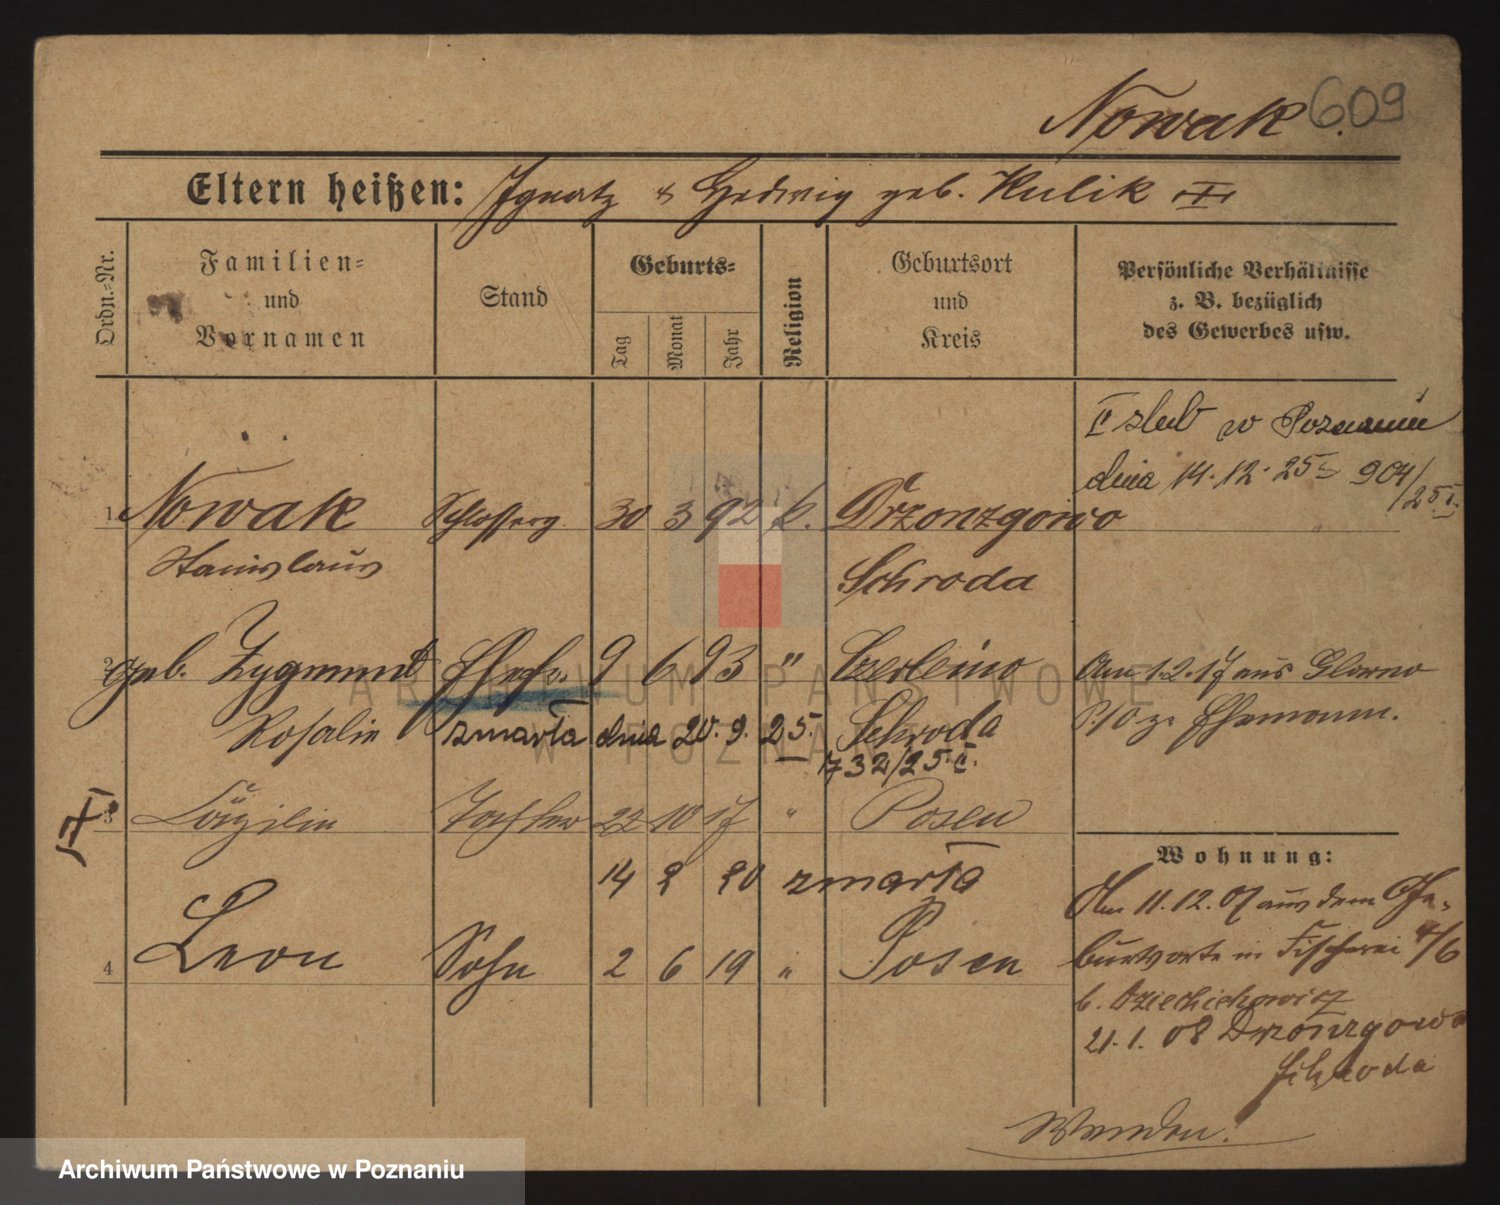 Nowak 609
Eltern heißen: Ignatz & Hedwig geb. Kulik
Ordn.-Nr.
Familien- und Vornamen
Stand
Geburts-
Tag Monat Jahr
Religion
Geburtsort und Kreis
Persönliche Verhältnisse
z. B. bezüglich
des Gewerbes usw.
II ślub w Poznaniu
dnia 14.12.25 904/25
1 Nowak Schlosserg. 30 3 92 k. Drzonzgowo
Stanislaus Schroda
2 geb. Zygmunt Ehefr. 9 6 93 " Czerleino
Am 1.2.17 aus
Rosalie zmarła dnia 20.9.25. Schroda
z. Ehemann.
732/25
3 Cäzilie Tochter 22 10 17 " Posen
14 2 20 zmarła
4 Leon Sohn 2 6 19 " Posen
Wohnung:
Am 11.12.07 aus dem Ge-
burtsorte in Fischerei 4/6
b.
21.1.08 Drzonzgowo
Schroda
Wenden!
ARCHIWUM PAŃSTWOWE
W POZNANIU
Archiwum Państwowe w Poznaniu